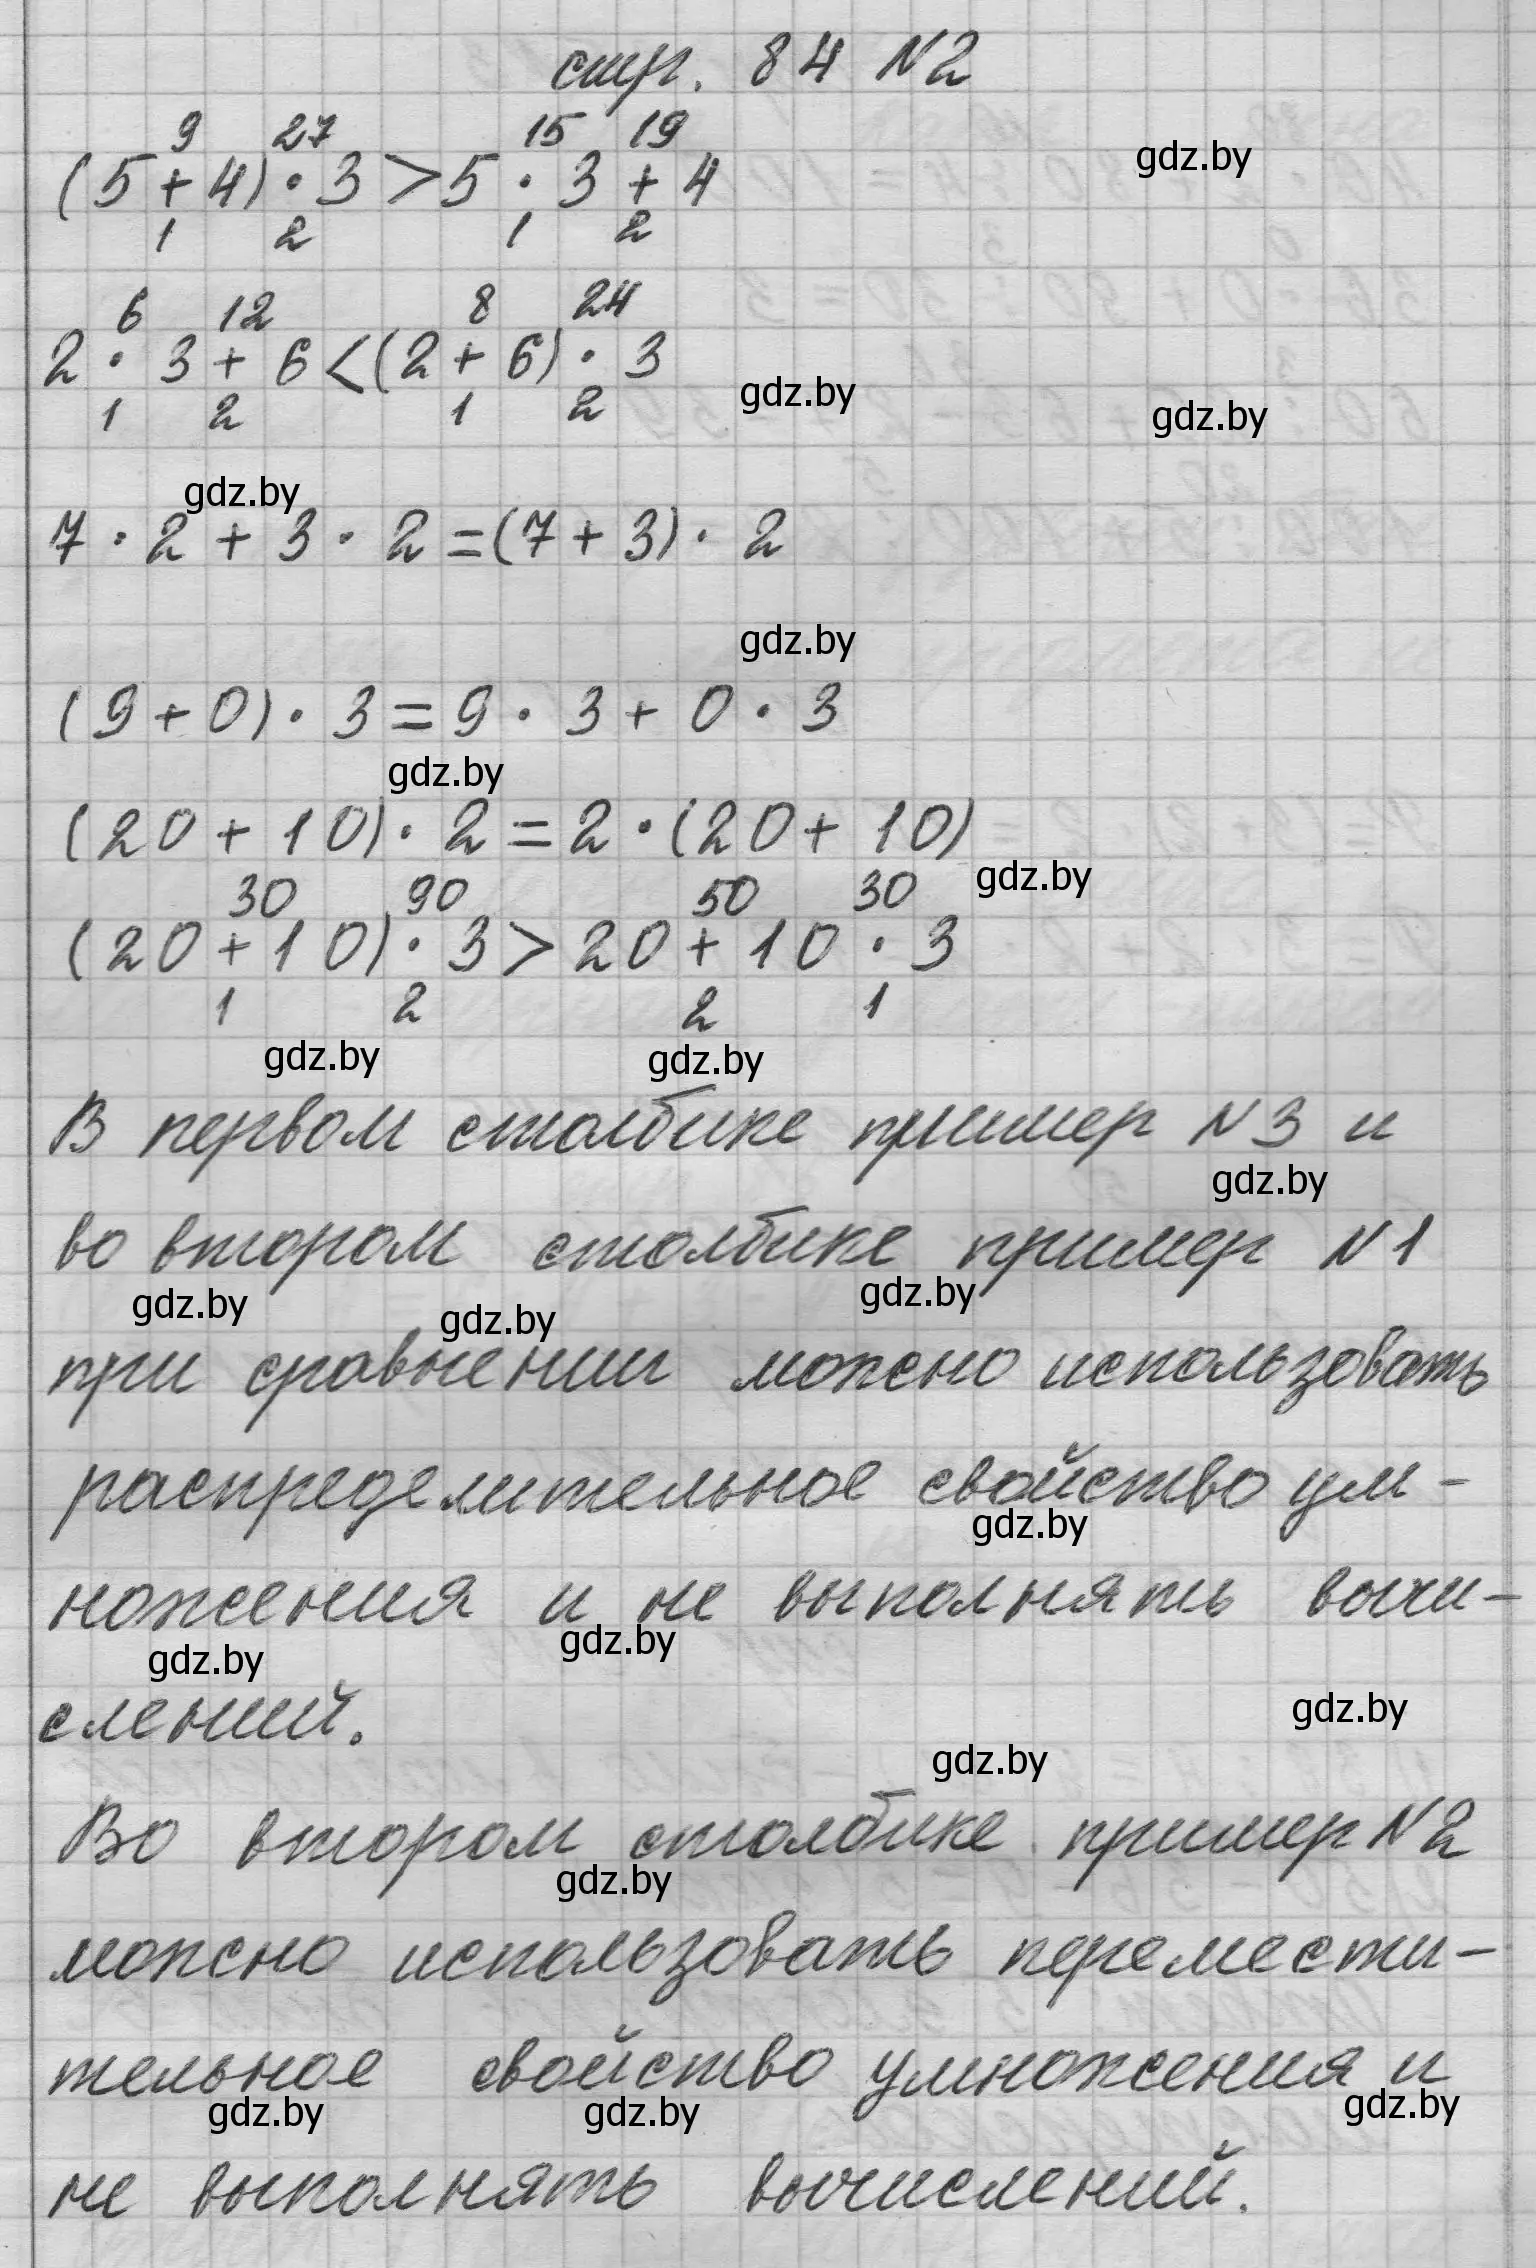 стр. 84 №2
9 27 15 19
(5 + 4) · 3 > 5 · 3 + 4
1 2 1 2
6 12 8 24
2 · 3 + 6 < (2 + 6) · 3
1 2 1 2
gdz.by
gdz.by
gdz.by
gdz.by
7 · 2 + 3 · 2 = (7 + 3) · 2
gdz.by
(9 + 0) · 3 = 9 · 3 + 0 · 3
gdz.by
(20 + 10) · 2 = 2 · (20 + 10)
gdz.by
30 90 50 30
(20 + 10) · 3 > 20 + 10 · 3
1 2 2 1
gdz.by gdz.by
В первом столбике пример №3 и
gdz.by
во втором столбике пример №1
gdz.by gdz.by gdz.by
при сравнении можно использовать
распределительное свойство ум-
gdz.by
ножения и не выполнять вычи-
gdz.by gdz.by
слений.
gdz.by
gdz.by
Во втором столбике пример №2
gdz.by
можно использовать перемести-
тельное свойство умножения и
gdz.by gdz.by gdz.by
не выполнять вычислений.